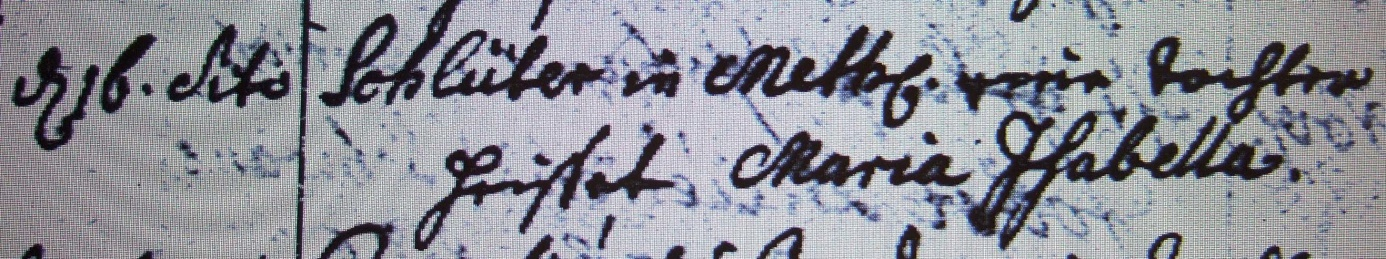 d 16. dito Schlüter in Mettk. eine Tochter
heisset Maria Isabella.